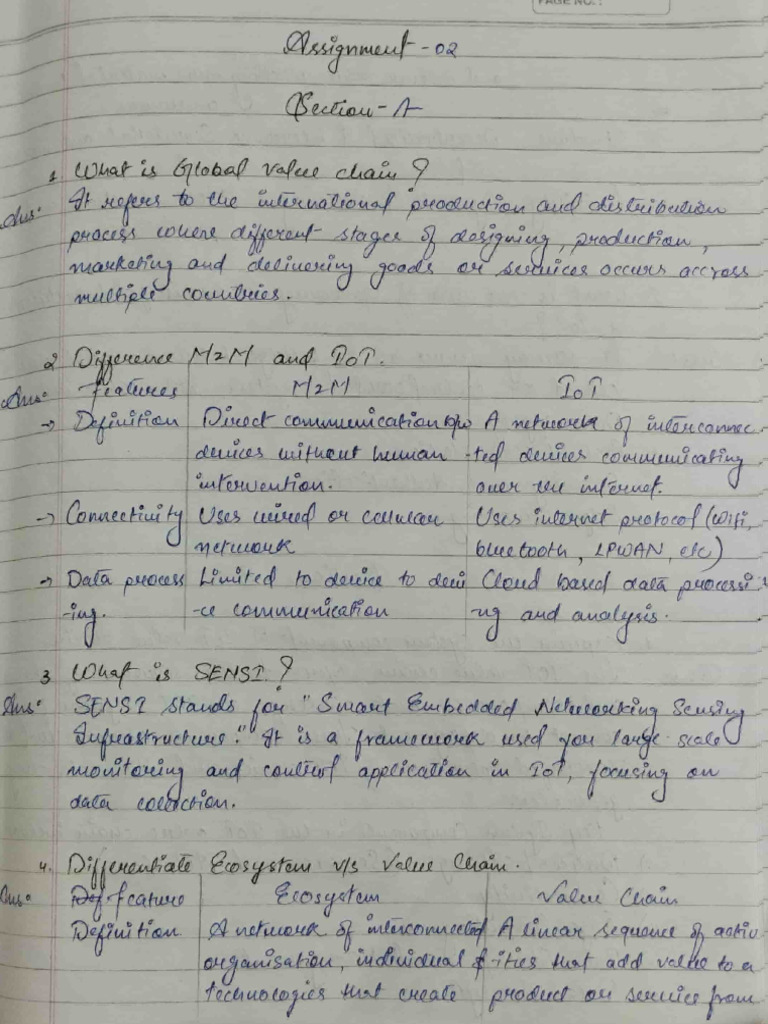 PAGE NO.:
Assignment - 02
Section - A
1. What is Global value chain?
Ans: It refers to the international production and distribution
process where different stages of designing, production,
marketing and delivering goods or services occurs accross
multiple countries.
2 Difference M2M and IoT.
Ans: features M2M IoT
→ Definition Direct communication b/w A network of interconnec
devices without human -ted devices communicating
intervention. over the internet.
→ Connectivity Uses wired or cellular Uses internet protocol (wifi,
network bluetooth, LPWAN, etc)
→ Data process Limited to device to devi Cloud based data processi
-ing. -ce communication ng and analysis.
3 What is SENSI.?
Ans: SENSI stands for "Smart Embedded Networking Sensing
Infrastructure." It is a framework used for large scale
monitoring and control application in IoT, focusing on
data collection.
4. Differentiate Ecosystem v/s Value Chain.
Ans: feature Ecosystem Value Chain
Definition A network of interconnected A linear sequence of activ
organisation, individual & -ities that add value to a
technologies that create product or service from